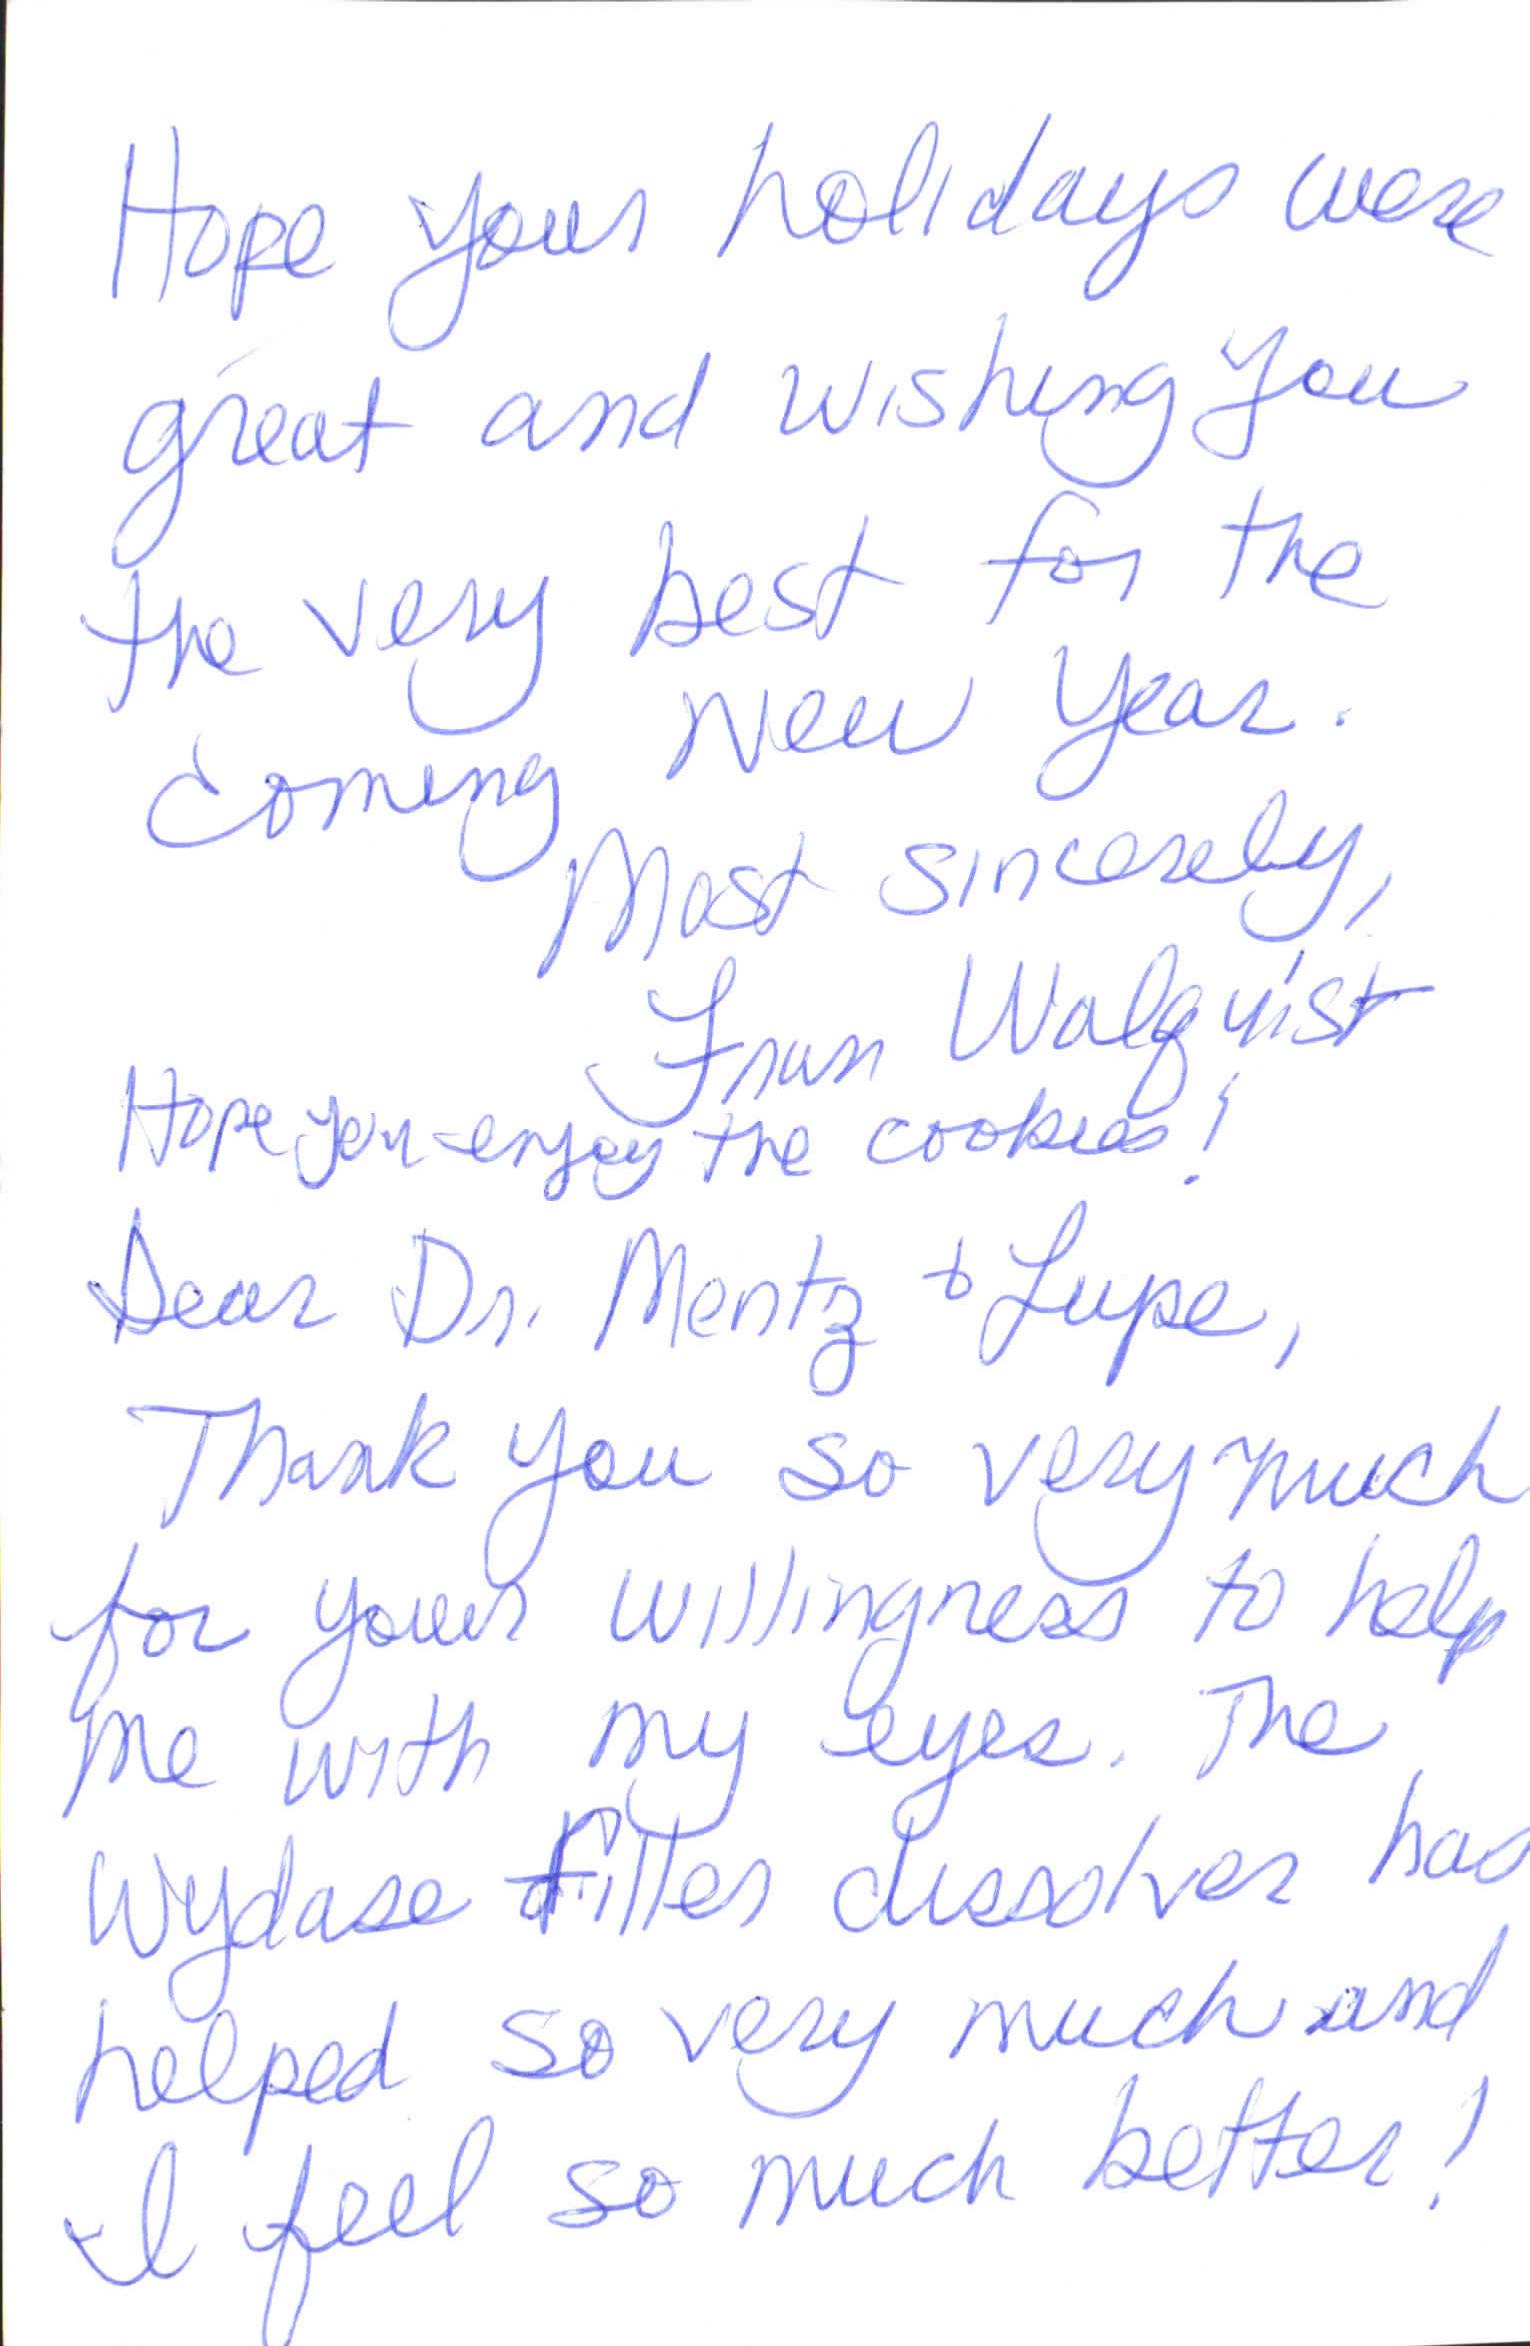 Hope your holidays were
great and wishing you
the very best for the
coming New Year.
Most sincerely,
Fran Walquist
Hope you enjoy the cookies!
Dear Dr. Mentz & Lupe,
Thank you so very much
for your willingness to help
me with my eyes. The
Wydase filler dissolver has
helped so very much and
I feel so much better!